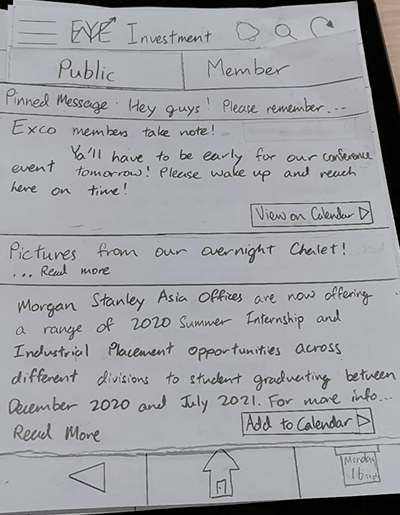 EYE Investment
Public Member
Pinned Message : Hey guys! Please remember...
Exco members take note!
Ya'll have to be early for our conference
event tomorrow! Please wake up and reach
here on time!
View on Calendar
Pictures from our overnight Chalet!
... Read more
Morgan Stanley Asia Offices are now offering
a range of 2020 Summer Internship and
Industrial Placement opportunities across
different divisions to student graduating between
December 2020 and July 2021. For more info...
Read More Add to Calendar
Monday
16